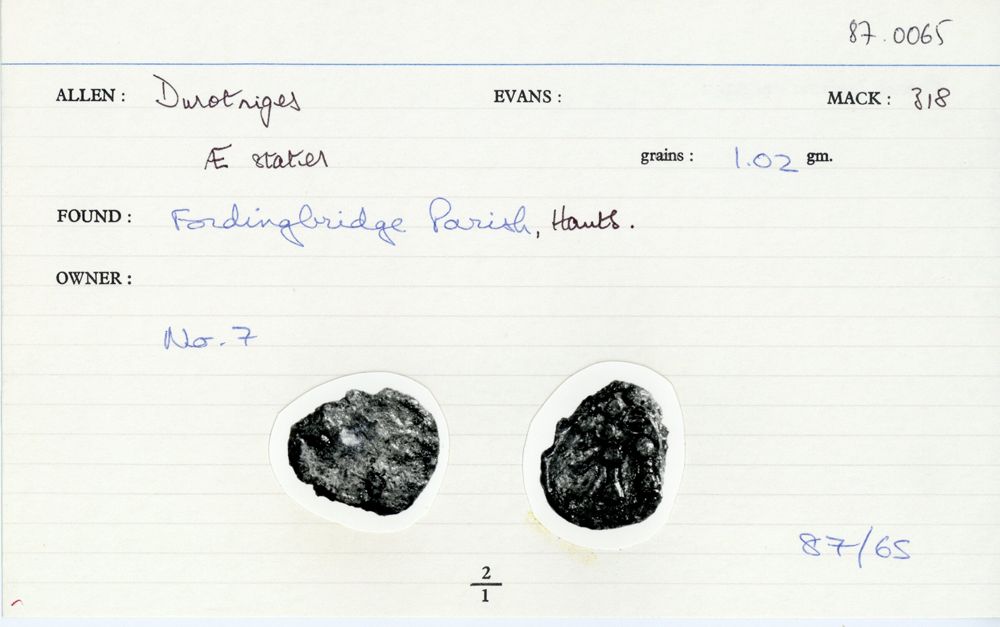 87.0065
ALLEN : Durotriges EVANS : MACK : 318
Æ stater grains : 1.02 gm.
FOUND : Fordingbridge Parish, Hants.
OWNER :
No. 7
87/65
2
1